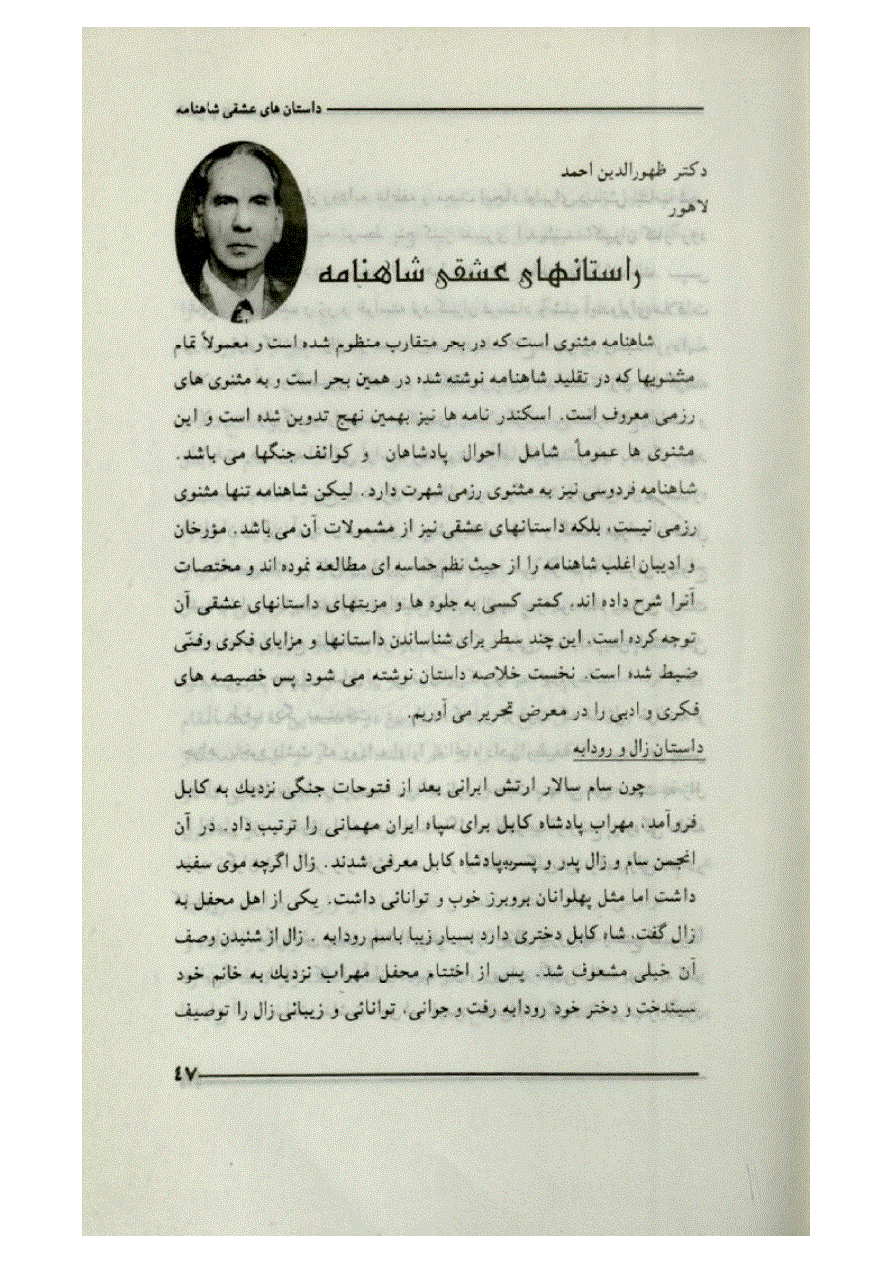 داستان های عشقی شاهنامه
دکتر ظهورالدین احمد
لاهور
راستانهای عشقی شاهنامه
شاهنامه مثنوی است که در بحر متقارب منظوم شده است و معمولاً تمام
مثنویها که در تقلید شاهنامه نوشته شده در همین بحر است و به مثنوی های
رزمی معروف است. اسکندر نامه ها نیز بهمین نهج تدوین شده است و این
مثنوی ها عموماً شامل احوال پادشاهان و کوائف جنگها می باشد.
شاهنامه فردوسی نیز به مثنوی رزمی شهرت دارد. لیکن شاهنامه تنها مثنوی
رزمی نیست، بلکه داستانهای عشقی نیز از مشمولات آن می باشد. مؤرخان
و ادیبان اغلب شاهنامه را از حیث نظم حماسه ای مطالعه نموده اند و مختصات
آنرا شرح داده اند. کمتر کسی به جلوه ها و مزیتهای داستانهای عشقی آن
توجه کرده است. این چند سطر برای شناساندن داستانها و مزایای فکری وفنّی
ضبط شده است. نخست خلاصه داستان نوشته می شود پس خصیصه های
فکری و ادبی را در معرض تحریر می آوریم.
داستان زال و رودابه
چون سام سالار ارتش ایرانی بعد از فتوحات جنگی نزدیك به کابل
فرورآمد، مهراب پادشاه کابل برای سپاه ایران مهمانی را ترتیب داد. در آن
انجمن سام و زال پدر و پسربه‌پادشاه کابل معرفی شدند. زال اگرچه موی سفید
داشت اما مثل پهلوانان بروبرز خوب و توانائی داشت. یکی از اهل محفل به
زال گفت، شاه کابل دختری دارد بسیار زیبا باسم رودابه . زال از شنیدن وصف
آن خیلی مشعوف شد. پس از اختتام محفل مهراب نزدیك به خانم خود
سیندخت و دختر خود رودابه رفت و جوانی، توانائی و زیبائی زال را توصیف
٤٧